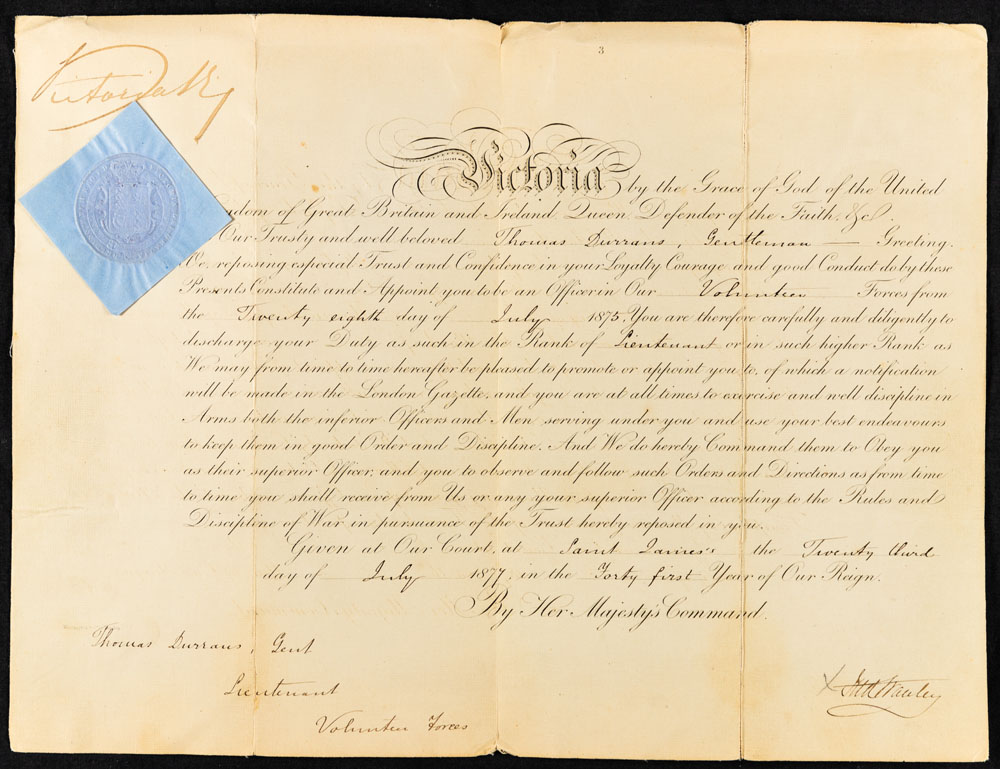 3
Victoria R
Victoria by the Grace of God of the United
dom of Great Britain and Ireland Queen, Defender of the Faith, &c.
Our Trusty and well beloved Thomas Durrans, Gentleman — Greeting.
We, reposing especial Trust and Confidence in your Loyalty Courage and good Conduct do by these
Presents Constitute and Appoint you to be an Officer in Our Volunteer Forces from
the Twenty eighth day of July 1875. You are therefore carefully and diligently to
discharge your Duty as such in the Rank of Lieutenant or in such higher Rank as
We may from time to time hereafter be pleased to promote or appoint you to, of which a notification
will be made in the London Gazette, and you are at all times to exercise and well discipline in
Arms both the inferior Officers and Men serving under you and use your best endeavours
to keep them in good Order and Discipline. And We do hereby Command them to Obey you
as their superior Officer, and you to observe and follow such Orders and Directions as from time
to time you shall receive from Us or any your superior Officer according to the Rules and
Discipline of War in pursuance of the Trust hereby reposed in you.
Given at Our Court, at Saint James's the Twenty third
day of July 1877, in the Forty first Year of Our Reign.
By Her Majesty's Command.
Thomas Durrans, Gent
Lieutenant
Volunteer Forces
Stanley